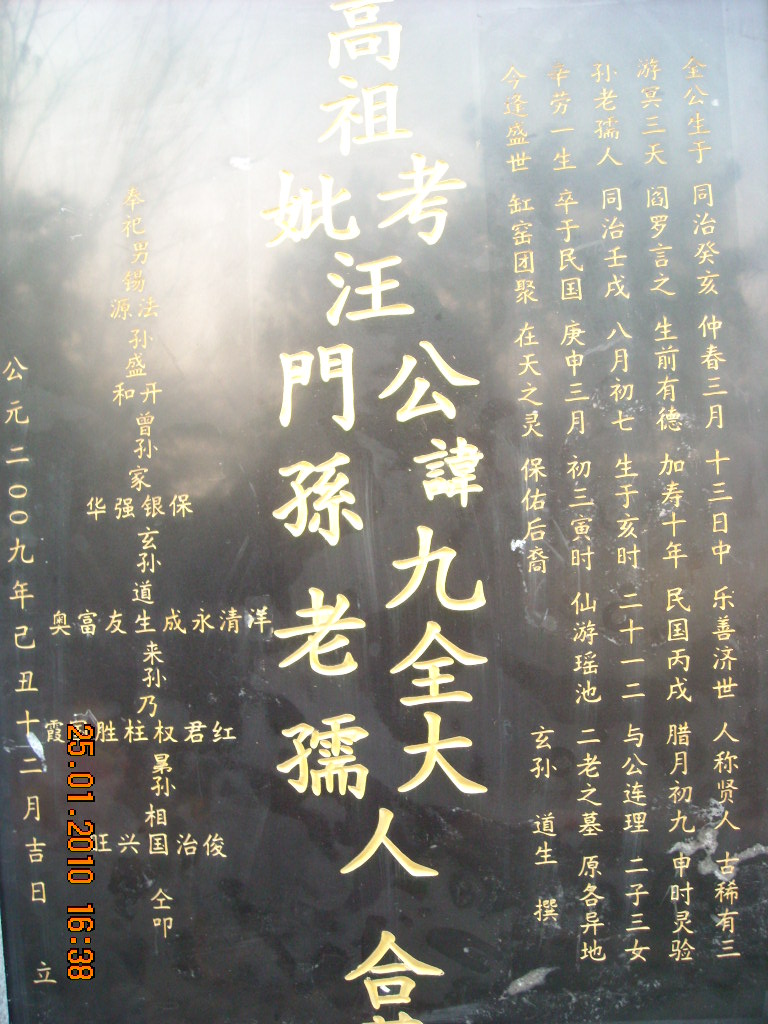 全公生于 同治癸亥 仲春三月 十三日中 乐善济世 人称贤人 古稀有三
游冥三天 阎罗言之 生前有德 加寿十年 民国丙戌 腊月初九 申时灵验
孙老孺人 同治壬戌 八月初七 生于亥时 二十一二 与公连理 二子三女
辛劳一生 卒于民国 庚申三月 初三寅时 仙游瑶池 二老之墓 原各异地
今逢盛世 缸窑团聚 在天之灵 保佑后裔 玄孙 道生 撰
高祖
考 公諱九全大
妣 門孫老孺
汪
人 合
奉祀男 锡
法 源
孙 盛
丹 和
曾孙 家
保银强华
玄孙 道
洋清永成生友富奥
来孙 乃
红君权柱胜 霞
晜孙 相
俊治国兴旺
仝叩
公元二〇〇九年己丑十二月吉日 立
25.01.2010 16:38